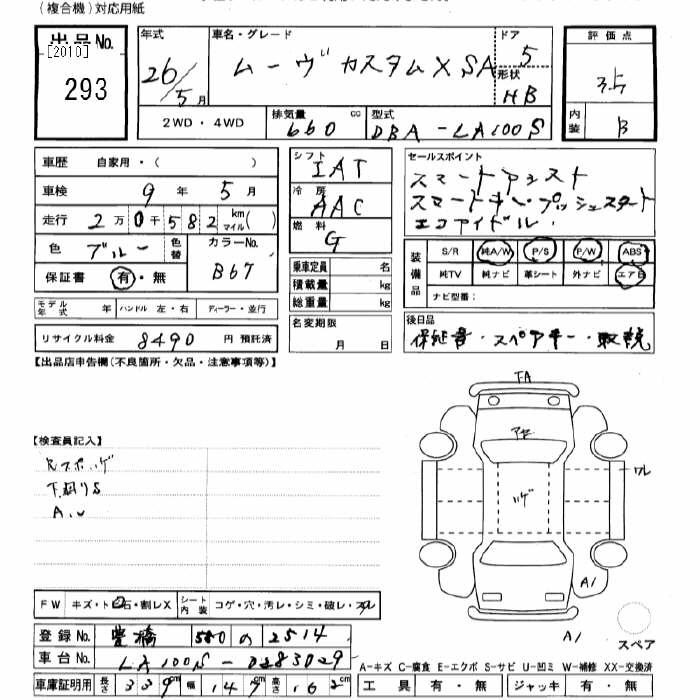 (複合機)対応用紙
出品No.
[2010]
293
年式 26/5月
車名・グレード ムーヴ カスタムX SA
ドア 5
形状 HB
評価点 3.5
内装 B
2WD・4WD
排気量 660 cc
型式 DBA-LA100S
車歴 自家用・( )
車検 9年 5月
走行 2万0千582 km マイル( )
色 ブルー 色替
カラーNo. B67
保証書 有・無
シフト IAT
冷房 AAC
燃料 G
セールスポイント
スマートアシスト
スマートキープッシュスタート
エコアイドル
装備品
S/R 純A/W P/S P/W ABS
純TV 純ナビ 革シート 外ナビ エアB
ナビ型番:
乗車定員 名
積載量 kg
総重量 kg
モデル年式 年 ハンドル 左・右 ディーラー・並行
リサイクル料金 8490 円 預託済
名変期限 月 日
後日品
保証書・スペアキー・取説
【出品店申告欄(不良箇所・欠品・注意事項等)】
【検査員記入】
下廻りS
A.U
FA
アセ
ハゲ
ワレ
A1
A1
スペア
FW キズ・ト石・割レX シート内装 コゲ・穴・汚レ・シミ・破レ・スレ
登録No. 豊橋 580 の 2514
車台No. LA100S-0283029
A-キズ C-腐食 E-エクボ S-サビ U-凹ミ W-補修 XX-交換済
車庫証明用 長さ 339cm 幅 147cm 高さ 162cm
工具 有・無 ジャッキ 有・無